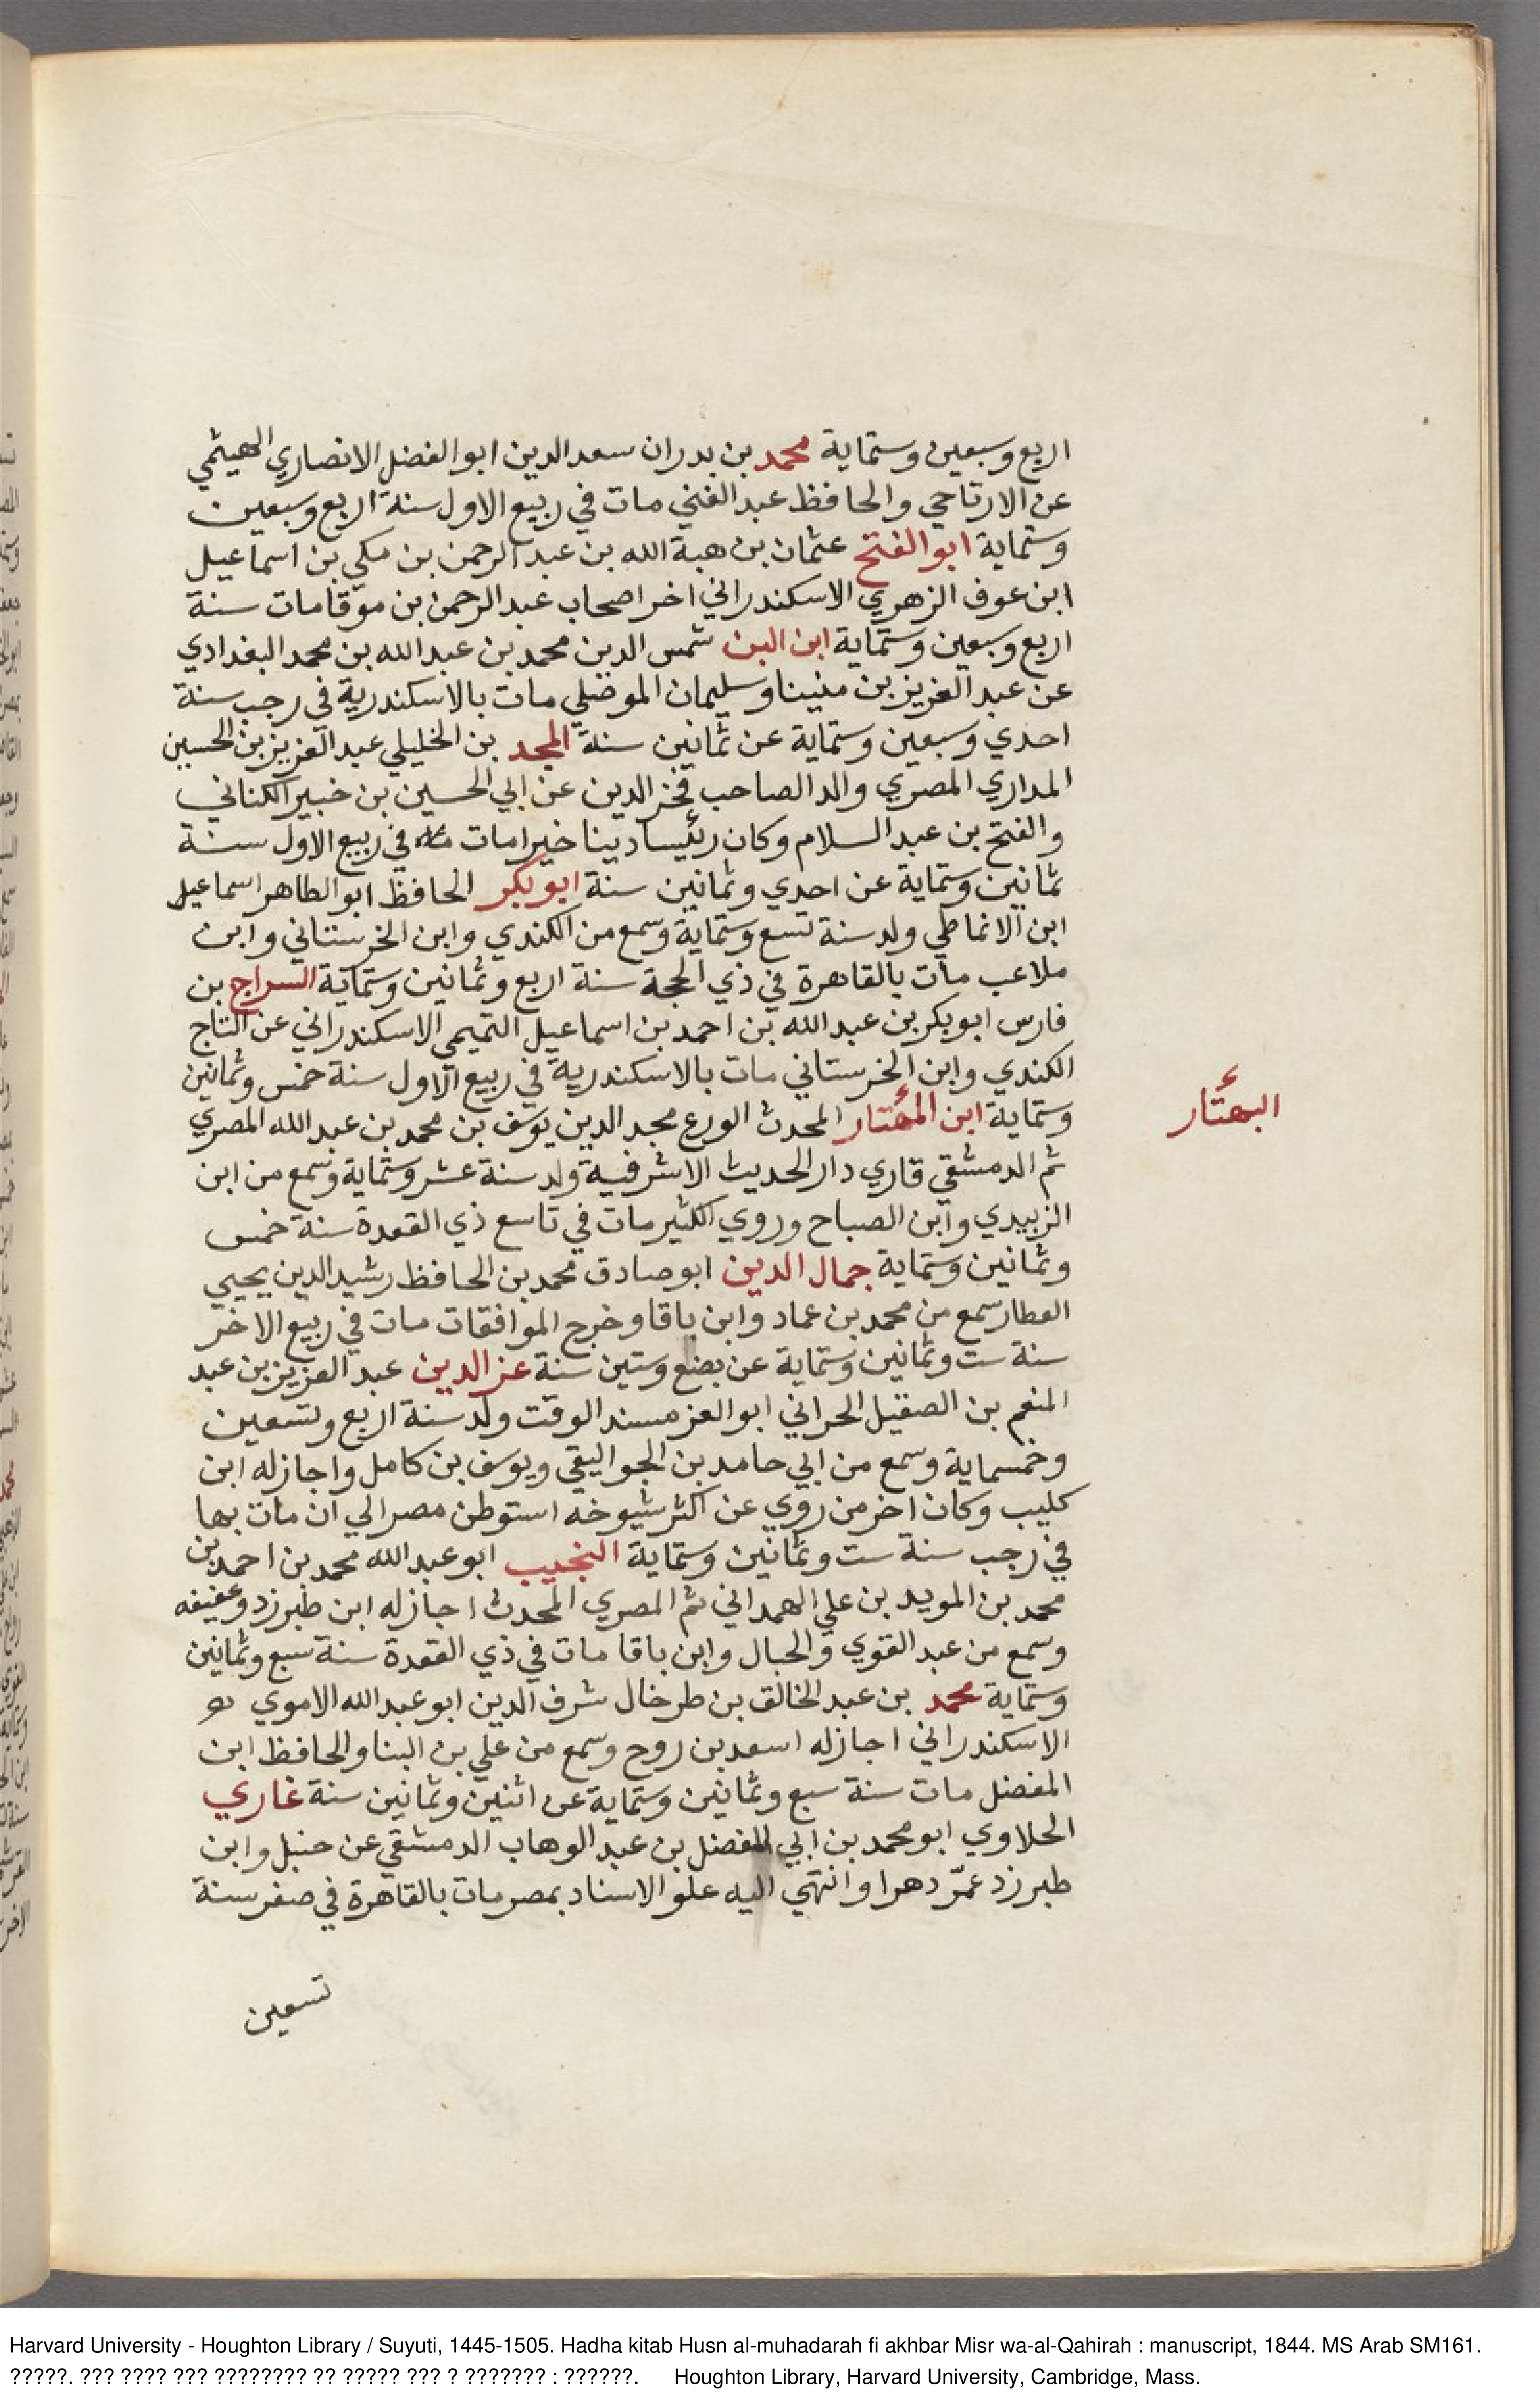 اربع وسبعين وستماية محمد بن بدران سعد الدين ابو الفضل الانصاري الهيثمي
عن الارتاحي والحافظ عبد الغني مات في ربيع الاول سنة اربع وسبعين
وستماية ابو الفتح عثمان بن هبة الله بن عبد الرحمن بن مكي بن اسماعيل
ابن عوف الزهري الاسكندراني اخر اصحاب عبد الرحمن بن موقا مات سنة
اربع وسبعين وستماية ابن البن شمس الدين محمد بن عبد الله بن محمد البغدادي
عن عبد العزيز بن منينا وسليمان الموصلي مات بالاسكندرية في رجب سنة
احدي وسبعين وستماية عن ثمانين سنة المجد بن الخليلي عبد العزيز بن الحسين
المداري المصري والد الصاحب فخر الدين عن ابي الحسين بن خبير الكناني
والفتح بن عبد السلام وكان رئيسا دينا خيرا مات في ربيع الاول سنة
ثمانين وستماية عن احدي وثمانين سنة ابو بكر الحافظ ابو الطاهر اسماعيل
ابن الانماطي ولد سنة تسع وستماية وسمع من الكندي وابن الخرستاني وابن
ملاعب مات بالقاهرة في ذي الحجة سنة اربع وثمانين وستماية السراج بن
فارس ابو بكر بن عبد الله بن احمد بن اسماعيل التميمي الاسكندراني عن التاج
الكندي وابن الخرستاني مات بالاسكندرية في ربيع الاول سنة خمس وثمانين
وستماية ابن المهتار المحدث الورع مجد الدين يوسف بن محمد بن عبد الله المصري
البهتار
ثم الدمشقي قاري دار الحديث الاشرفية ولد سنة عشر وستماية وسمع من ابن
الزبيدي وابن الصباح وروي الكثير مات في تاسع ذي القعدة سنة خمس
وثمانين وستماية جمال الدين ابو صادق محمد بن الحافظ رشيد الدين يحيي
العطار سمع من محمد بن عماد وابن باقا وخرج الموافقات مات في ربيع الاخر
سنة ست وثمانين وستماية عن بضع وستين سنة عز الدين عبد العزيز بن عبد
المنعم بن الصقيل الحراني ابو العز مسند الوقت ولد سنة اربع وتسعين
وخمسماية وسمع من ابي حامد بن الجواليقي ويوسف بن كامل واجاز له ابن
كليب وكان اخر من روي عن اكثر شيوخه استوطن مصر الي ان مات بها
في رجب سنة ست وثمانين وستماية النجيب ابو عبد الله محمد بن احمد بن
محمد بن المويد بن علي الهمداني ثم المصري المحدث اجاز له ابن طبرزد وعفيفه
وسمع من عبد القوي والجبال وابن باقا مات في ذي القعدة سنة سبع وثمانين
وستماية محمد بن عبد الخالق بن طرخال شرف الدين ابو عبد الله الاموي
الاسكندراني اجاز له اسعد بن روح وسمع من علي بن البنا والحافظ ابن
المفضل مات سنة سبع وثمانين وستماية عن اثنين وثمانين سنة غاري
الحلاوي ابو محمد بن ابي الفضل بن عبد الوهاب الدمشقي عن حنبل وابن
طبرزد عمّر دهرا وانتهي اليه علو الاسناد بمصر مات بالقاهرة في صفر سنة
تسعين
Harvard University - Houghton Library / Suyuti, 1445-1505. Hadha kitab Husn al-muhadarah fi akhbar Misr wa-al-Qahirah : manuscript, 1844. MS Arab SM161.
?????. ??? ???? ??? ???????? ?? ????? ??? ? ??????? : ??????. Houghton Library, Harvard University, Cambridge, Mass.